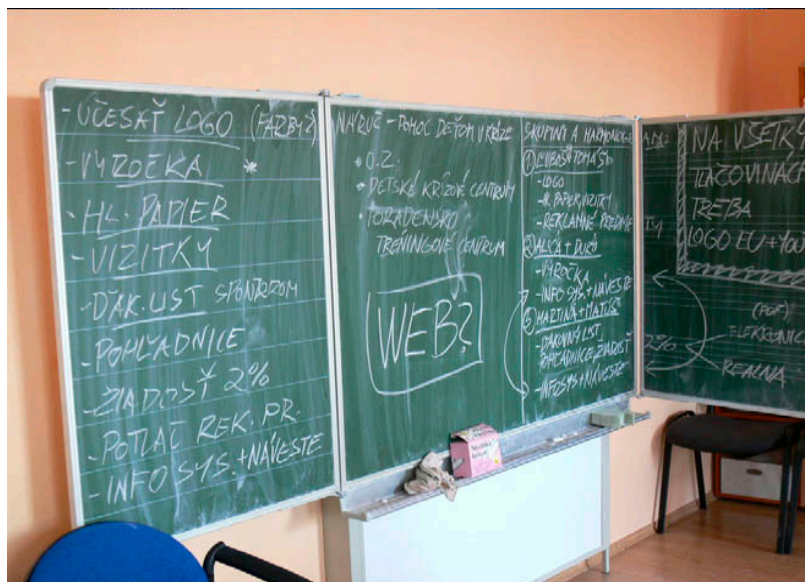 - UČESAŤ LOGO (FARBY?)
- VÝROČKA *
- HL. PAPIER
- VIZITKY
- ĎAK. LIST SPONZROM
- POHĽADNICE
- ŽIADOSŤ 2%
- POTLAČ REK. PR.
- INFO SYS. + NÁVESTE
NÁRUČ - POMOC DEŤOM V KRÍZE
• O.Z.
• DETSKÉ KRÍZOVÉ CENTRUM
• PORADENSKO
TRÉNINGOVÉ CENTRUM
WEB?
SKUPINY A HARMONOGRAM:
① ĽUBOŠ + TOMÁŠ
- LOGO
- HL. PAPIER, VIZITKY
- REKLAMNÉ
② ALICA + ĎURO
- VÝROČKA
- INFO SYS. + NÁVESTE
③ MARTINA + MATÚŠ
- ĎAKOVNÝ LIST,
POHĽADNICE, ŽIADOSŤ
- INFO SYS + NÁVESTE
2%
NA VŠETKÝ
TLAČOVINÁCH
TREBA
LOGO EU + YOU
(PDF)
ELEKTRONIC
- REÁLNA